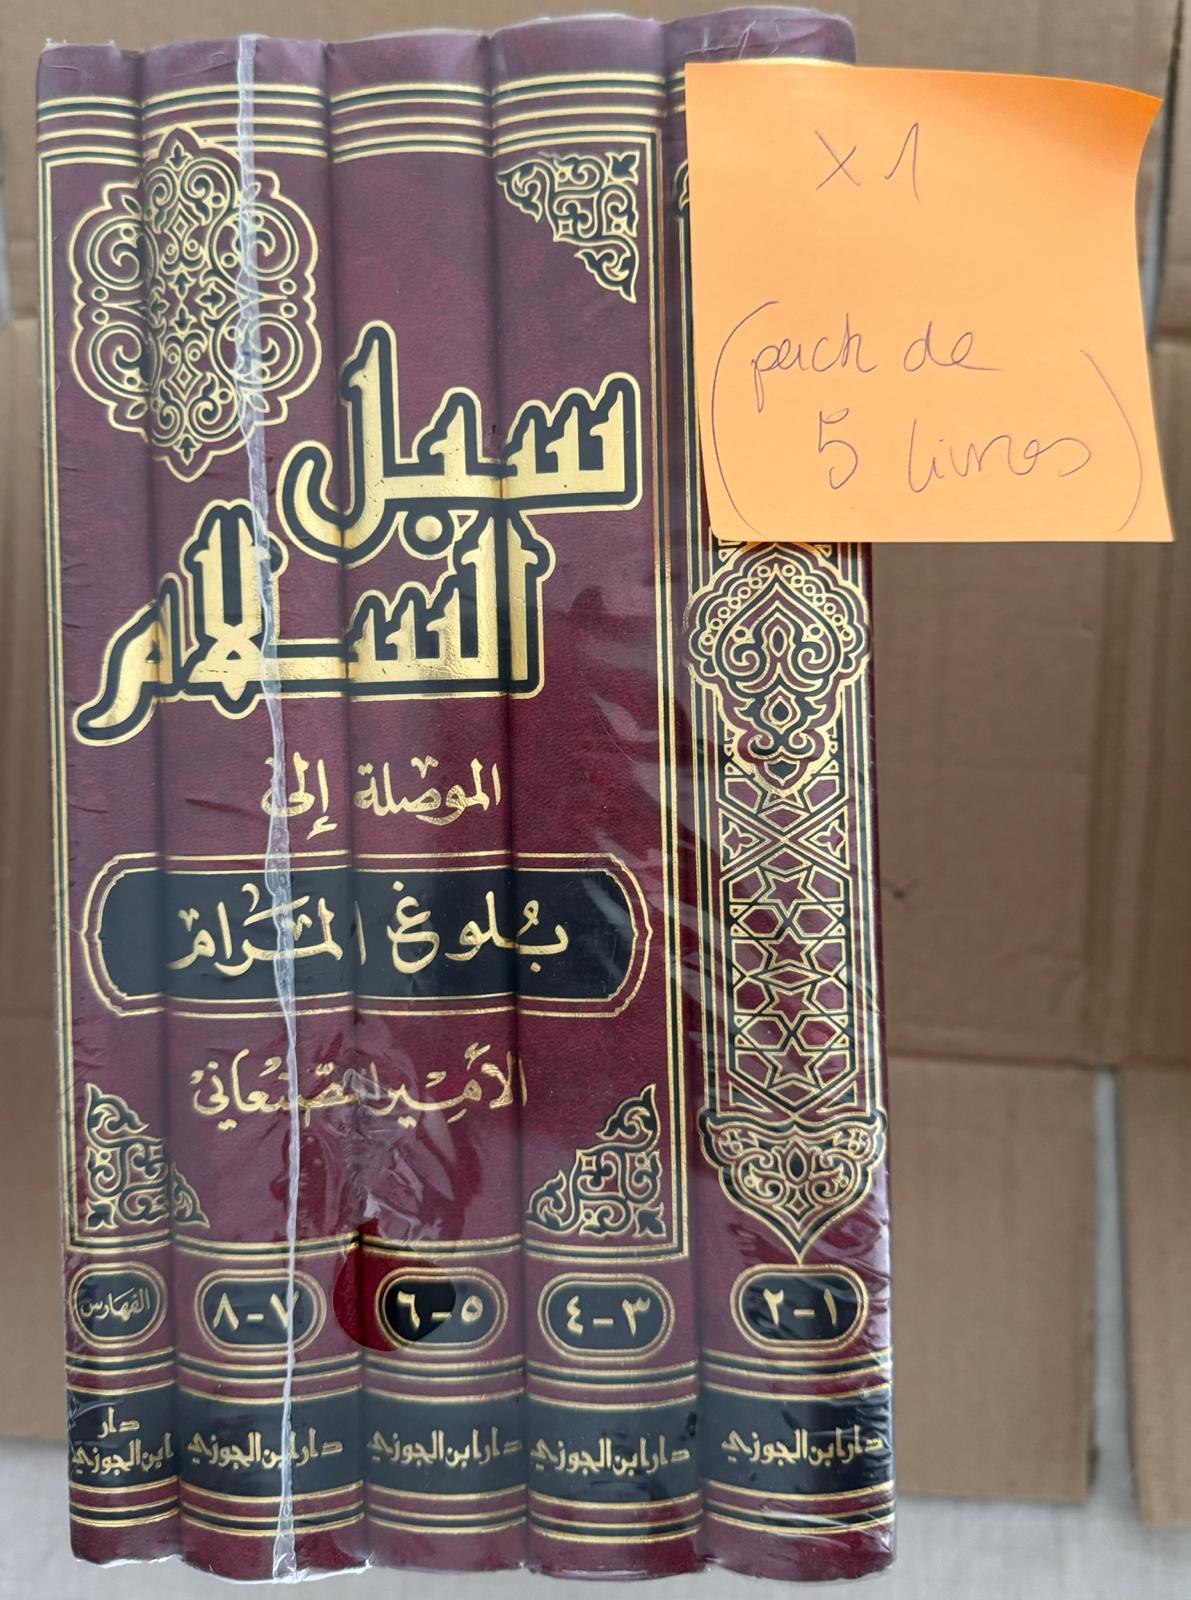 x 1
(pack de
5 livres)
سبل
السلام
الموصلة إلى
بلوغ المرام
الأمير الصنعاني
١-٢
٣-٤
٥-٦
٧-٨
الفهارس
دار ابن الجوزي
دار ابن الجوزي
دار ابن الجوزي
دار ابن الجوزي
دار
ابن الجوزي